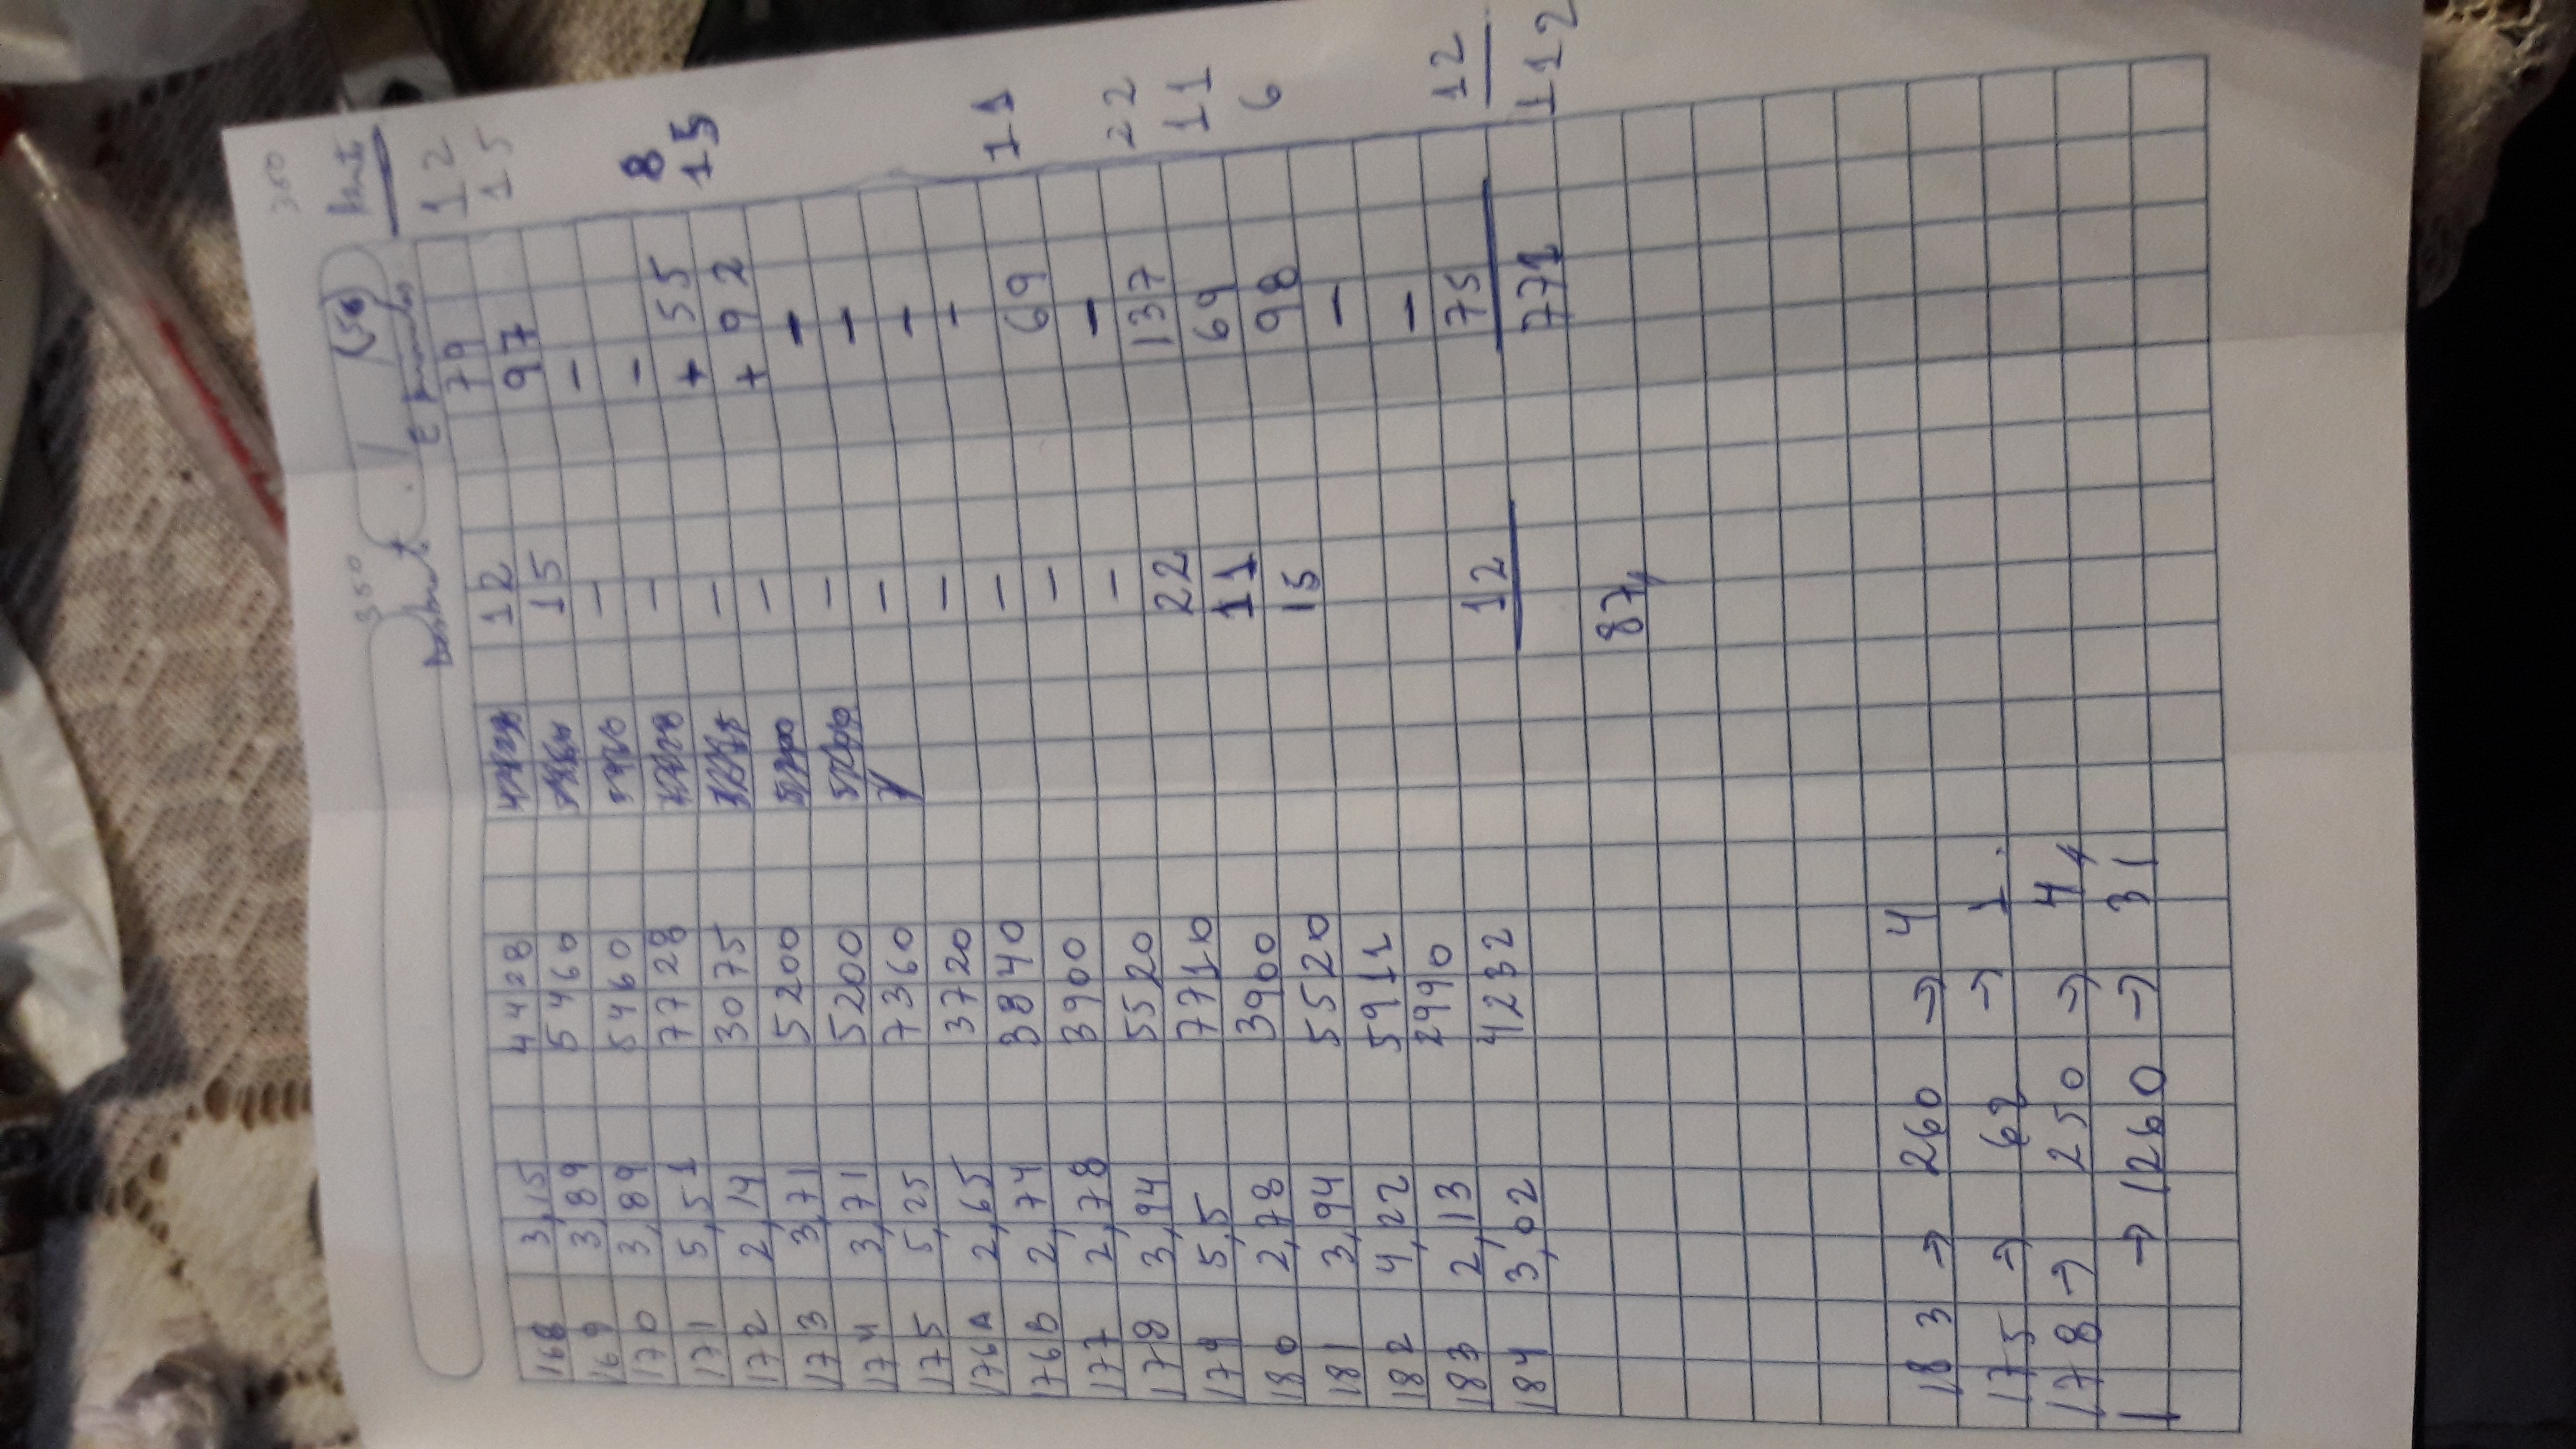 350
350 (56)
168 3,15 4428 12 79 12
169 3,89 5460 15 97 15
170 3,89 5460 — —
171 5,51 7728 — — 8
172 2,14 3075 — + 55 15
173 3,71 5200 — + 92
174 3,71 5200 — —
175 5,25 7360 — —
176A 2,65 3720 — —
176B 2,74 3840 — — 11
177 2,78 3900 — 69
178 3,94 5520 — — 22
179 5,5 7710 22 137 11
180 2,78 3900 11 69 6
181 3,94 5520 15 98
182 4,22 5911 —
183 2,13 2990 — 12
184 3,02 4232 12 75
771 112
87
183 → 260 → 4
175 → 62 → 1
178 → 250 → 4
1 → 1260 → 31